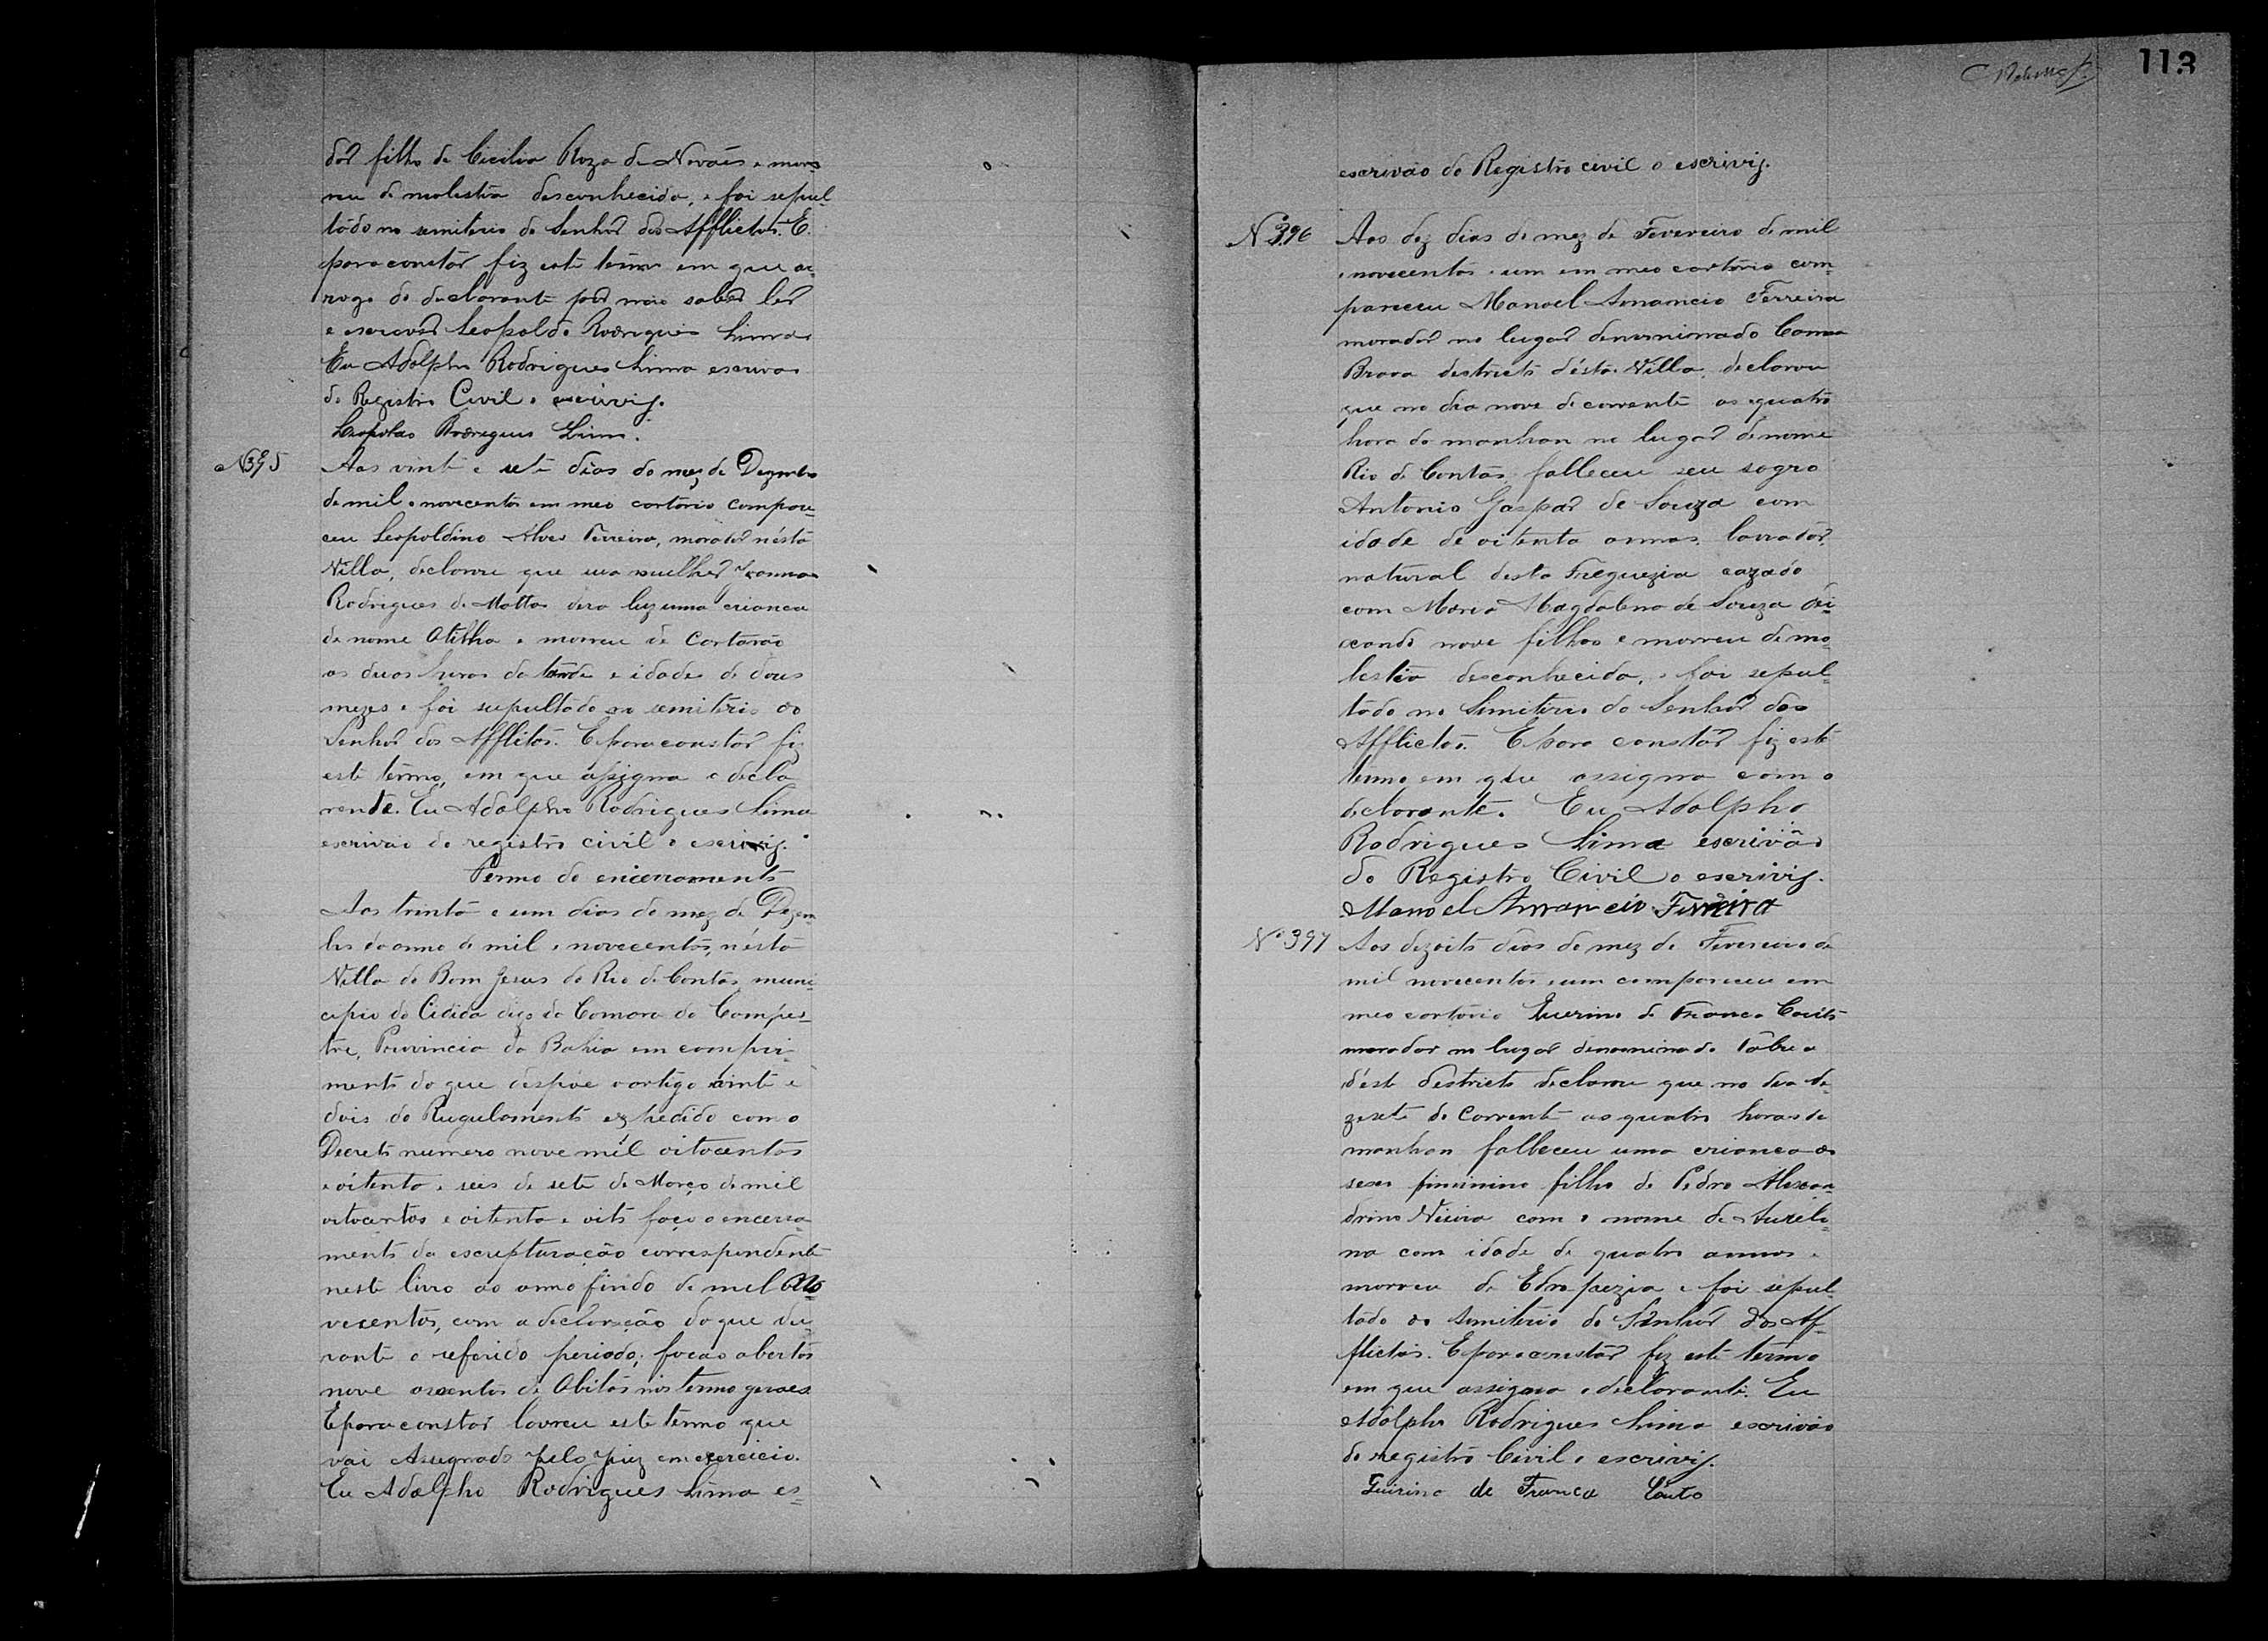 dor filho de Cicilia Roza de Novaes e mor-
reu de molestia desconhecida, e foi sepul-
tado no semiterio do Senhor dos Afflictos. E
para constar fiz este termo em que a
rogo do declarante por não saber ler
e escrever Leopoldo Rodrigues Lima
Eu Adolpho Rodrigues Lima escrivão
do Registro Civil o escrivy.
Leopoldo Rodrigues Lima.
Nº 395
Aos vinte e sete dias do mez de Dezembro
de mil e novecentos em meo cartorio compare-
ceu Leopoldino Alves Ferreira, morador nésta
Villa, declarou que sua mulher Joanna
Rodrigues da Motta dera luz uma crianca
de nome Otilha e morreu de
as duas horas da tarde e idade de dous
mezes e foi sepultado no semiterio do
Senhor dos Afflitos. E para constar fiz
este termo, em que assigna o decla
rante. Eu Adolpho Rodrigues Lima
escrivão do registro civil o escrivy.
Termo de encerramento
Aos trinta e um dias do mez de Dezem
bro do anno de mil e novecentos, nésta
Villa do Bom Jesus do Rio de Contas, muni-
cipio da Cidida digo da Comarca do Campes-
tre, Provincia da Bahia em compri-
mento do que dispõe o artigo vinte e
dois do Regulamento exhedido com o
Decreto numero nove mil oitocentos
e oitenta e seis de sete de Março de mil
oitocentos e oitenta e oito faço o encerra-
mento da escripturação correspondente
neste livro ao anno findo de mil e No
vecentos, com a declaração do que du-
rante o referido periodo, abertos
nove assentos de Obitos nos termo geraes
E para constar lavreu este termo que
vai Assegnado pelo Juiz em exercicio.
Eu Adolpho Rodrigues Lima es-
113
escrivão do Registro civil o escrivy.
Nº 396
Aos dez dias do mez de Fevereiro de mil
e novecentos e um em meo cartorio com-
pareceu Manoel Amancio Ferreira
morador no lugar denominado Canna
Brava districto désta Villa, declarou
que no dia nove do corrente as quatro
hora da manhan no lugar de nome
Rio de Contas falleceu seu sogro
Antonio Gaspar de Souza com
idade de oitenta annos, lavrador,
natural desta Freguezia cazado
com Maria Magdalena de Souza dei-
xando nove filhos e morreu de mo-
lestia desconhecida, e foi sepul-
tado no Simiterio do Senhor dos
Afflictos. E para constar fiz este
termo em que assigna com o
declarante. Eu Adolpho
Rodrigues Lima escrivão
do Registro Civil o escrivy.
Manoel Amancio Ferreira
Nº 397
Aos dezoito dias do mez de Fevereiro de
mil novecentos e um compareceu em
meo cartorio Quirino de Franca Couto
morador no lugar denominado Tabua
déste districto declarou que no dia de-
zesete do corrente as quatro horas da
manhan falleceu uma crianca do
sexo fiminino filha de Pedro Alexan-
drino Vieira com o nome de Aureli-
na com idade de quatro annos e
morreu de Edropezia e foi sepul-
tado no Semiterio do Senhor dos Af-
flictos. E para constar fiz este termo
em que assigna o declarante. Eu
Adolpho Rodrigues Lima escrivão
do registro Civil o escrivy.
Quirino de Franca Couto